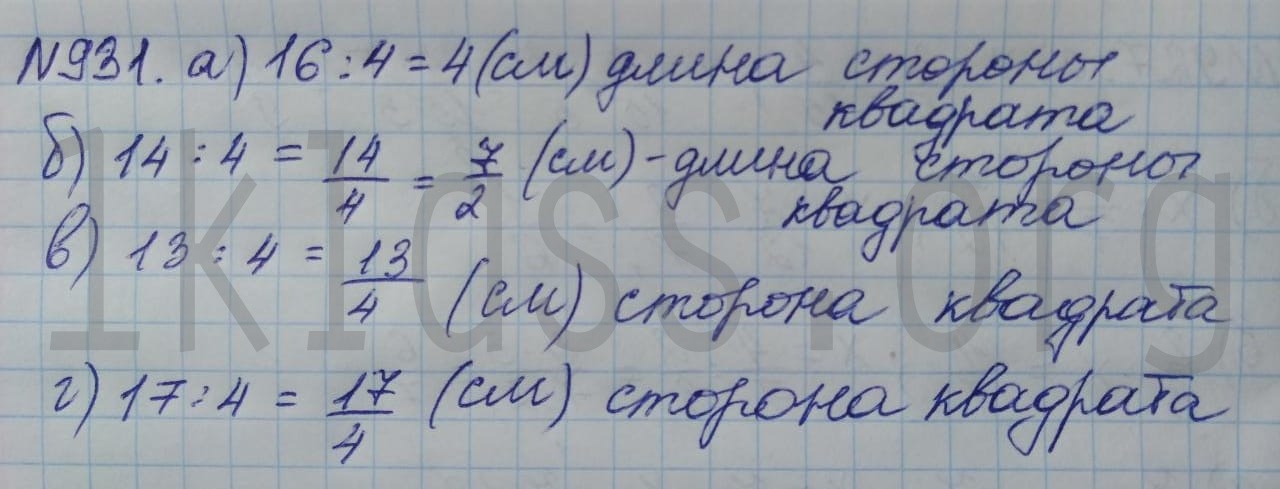 №931. а) 16 : 4 = 4 (см) длина стороны
квадрата
б) 14 : 4 = 14/4 = 7/2 (см) - длина стороны
квадрата
в) 13 : 4 = 13/4 (см) сторона квадрата
г) 17 : 4 = 17/4 (см) сторона квадрата
1klass.org